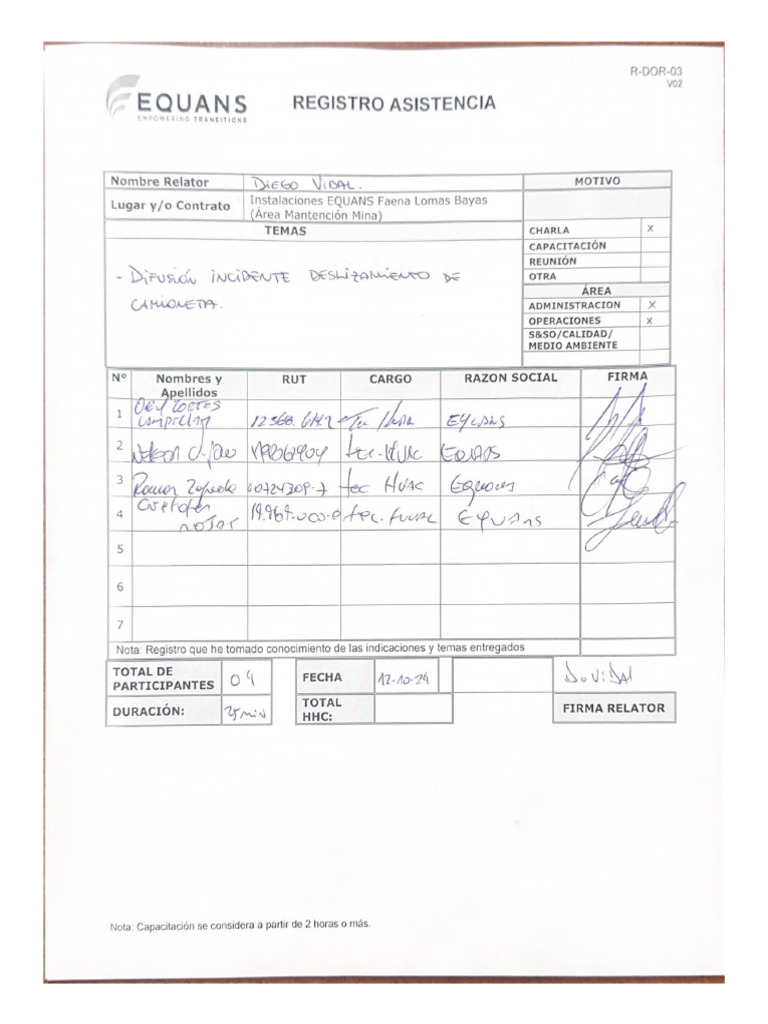 R-DOR-03
V02
EQUANS
EMPOWERING TRANSITIONS
REGISTRO ASISTENCIA
Nombre Relator DIEGO VIDAL.
MOTIVO
Lugar y/o Contrato Instalaciones EQUANS Faena Lomas Bayas
(Área Mantención Mina)
TEMAS
CHARLA X
CAPACITACIÓN
REUNIÓN
OTRA
ÁREA
ADMINISTRACION X
OPERACIONES X
S&SO/CALIDAD/
MEDIO AMBIENTE
- DIFUSIÓN INCIDENTE DESLIZAMIENTO DE
CAMIONETA.
Nº Nombres y
Apellidos RUT CARGO RAZON SOCIAL FIRMA
1 EQUANS
2 Nelson tec-HVAC EQUANS
3 Ramon Zepeda tec HVAC Equans
4 tec. EQUANS
5
6
7
Nota: Registro que he tomado conocimiento de las indicaciones y temas entregados
TOTAL DE
PARTICIPANTES 04
FECHA 12-10-24
D. Vidal
DURACIÓN: 25 min
TOTAL
HHC:
FIRMA RELATOR
Nota: Capacitación se considera a partir de 2 horas o más.